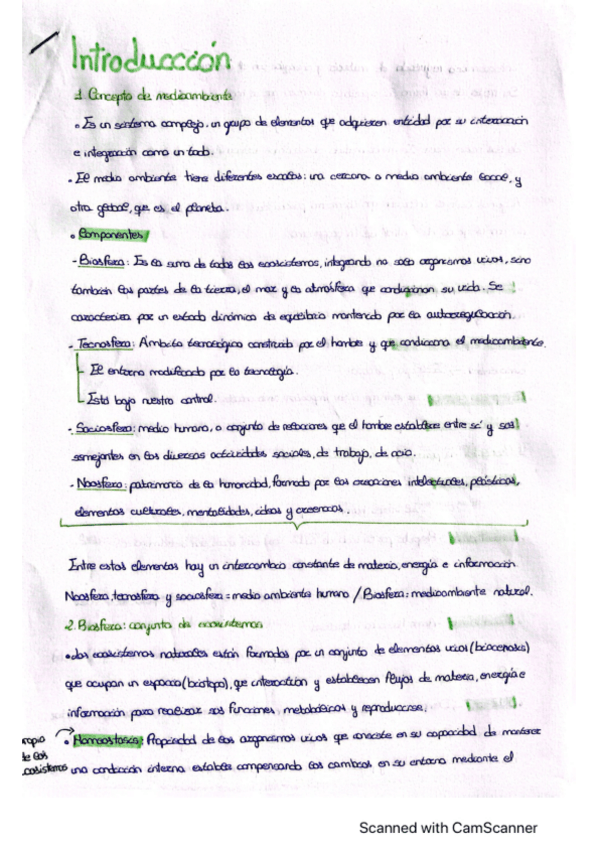 Introducción
1. Concepto de medioambiente
• Es un sistema complejo, un grupo de elementos que adquieren entidad por su interacción
e integración como un todo.
• El medio ambiente tiene diferentes escalas: una cercana o medio ambiente local, y
otra global, que es el planeta.
• Componentes/
- Biosfera: Es la suma de todos los ecosistemas, integrando no solo organismos vivos, sino
también las partes de la tierra, el mar y la atmósfera que condicionan su vida. Se
caracteriza por un estado dinámico de equilibrio mantenido por la autorregulación.
- Tecnosfera: Ámbito tecnológico construido por el hombre y que condiciona el medioambiente.
- El entorno modificado por la tecnología.
- Está bajo nuestro control.
- Sociosfera: medio humano, o conjunto de relaciones que el hombre establece entre sí y sus
semejantes en las diversas actividades sociales, de trabajo, de ocio.
- Noosfera: patrimonio de la humanidad, formado por las creaciones intelectuales, artísticas,
elementos culturales, mentalidades, ideas y creencias.
Entre estos elementos hay un intercambio constante de materia, energía e información.
Noosfera, tecnosfera y sociosfera = medio ambiente humano / Biosfera: medioambiente natural.
2. Biosfera: conjunto de ecosistemas
• Los ecosistemas naturales están formados por un conjunto de elementos vivos (biocenosis)
que ocupan un espacio (biotopo), que interactúan y establecen flujos de materia, energía e
información para realizar sus funciones metabólicas y reproducirse.
• Homeostasis: Propiedad de los organismos vivos que consiste en su capacidad de mantener
una condición interna estable compensando los cambios en su entorno mediante el
ropio
de los
cosistemas
Scanned with CamScanner